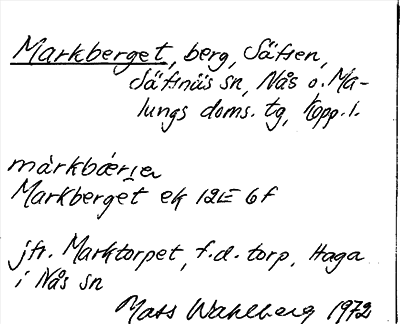 Markberget, berg, Säfsen,
Säfsnäs sn, Nås o. Ma-
lungs doms. tg, Kopp. l.
màrkbærⁱe
Markberget ek 12E 6f
jfr. Marktorpet, f.d. torp, Haga
i Nås sn
Mats Wahlberg 1972